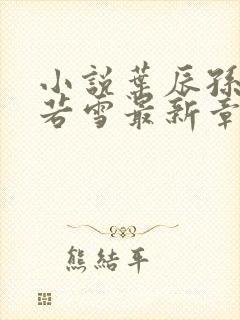 小說葉辰孫
若雪最新章
熊結平